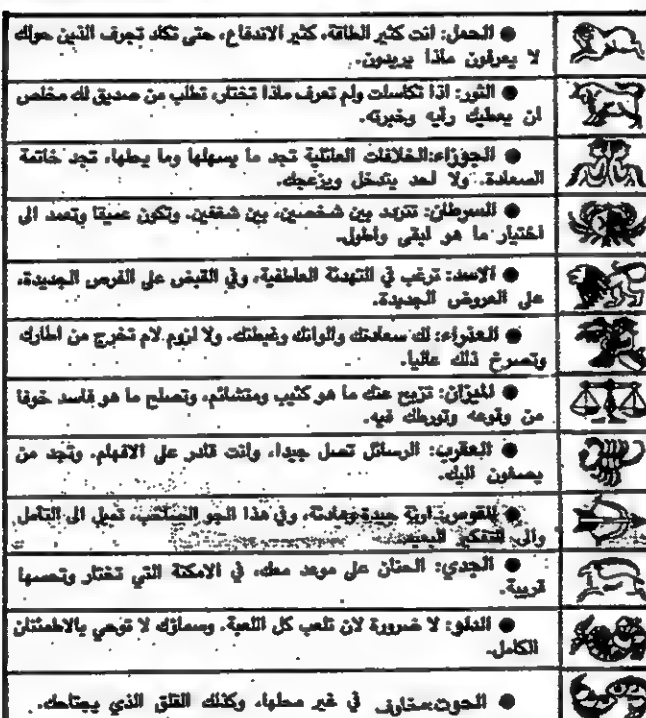 ● الحمل: انت كثير الطاقة، كثير الاندفاع، حتى تكاد تجرف الذين حولك
لا يعرفون ماذا يريدون.
● الثور: اذا تكاسلت ولم تعرف ماذا تختار، تطلب من صديق لك مخلص
ان يعطيك رأيه وخبرته.
● الجوزاء: الخلافات العائلية تجد ما يسهلها وما يحلها، تجد خاتمة
السعادة. ولا احد يتدخل ويزعجك.
● السرطان: تتردد بين شخصين، بين شغفين. وتكون عميقا وتعمد الى
اختيار ما هو ابقى واطول.
● الاسد: ترغب في التهدئة العاطفية، وفي القبض على الفرص الجديدة،
على العروض الجديدة.
● العذراء: لك سعادتك والوانك وغبطتك. ولا لزوم لان تخرج من اطارك
وتصرخ ذلك عاليا.
● الميزان: تزيح عنك ما هو كئيب ومتشائم، وتصلح ما هو فاسد خوفا
من وقوعه وتورطك فيه.
● العقرب: الرسائل تصل جيدا، وانت قادر على الافهام. وتجد من
يصغون اليك.
● القوس: جيدة وهادئة، وفي هذا الجو الصاخب، تميل الى التأمل
والى التفكير البعيد.
● الجدي: الحنان على موعد معك، في الامكنة التي تختار وتحسها
قريبة.
● الدلو: لا ضرورة لان تلعب كل اللعبة. وسماؤك لا توحي بالاطمئنان
الكامل.
● الحوت: مخاوف في غير محلها، وكذلك القلق الذي يجتاحك.